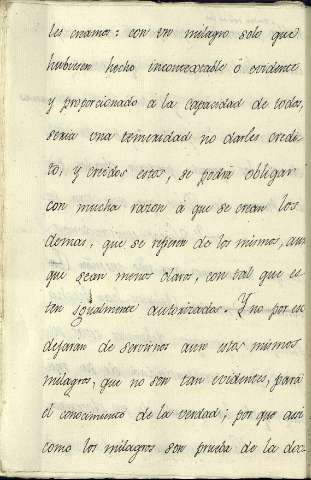 les enamos: con un milagro solo que
hubiesen hecho incontextable ó evidente
y proporcionado á la capacidad de todos,
seria una temeridad no darles credi-
to, y creidos estos, se podrá obligar
con mucha razon á que se crean los
demas, que se refieren de los mismos, aun
que sean menos claros, con tal que es
ten igualmente autorizados. Y no por eso
dejaran de servirnos aun estos mismos
milagros, que no son tan evidentes, para
el conocimiento de la verdad; por que asi
como los milagros son prueba de la doc-